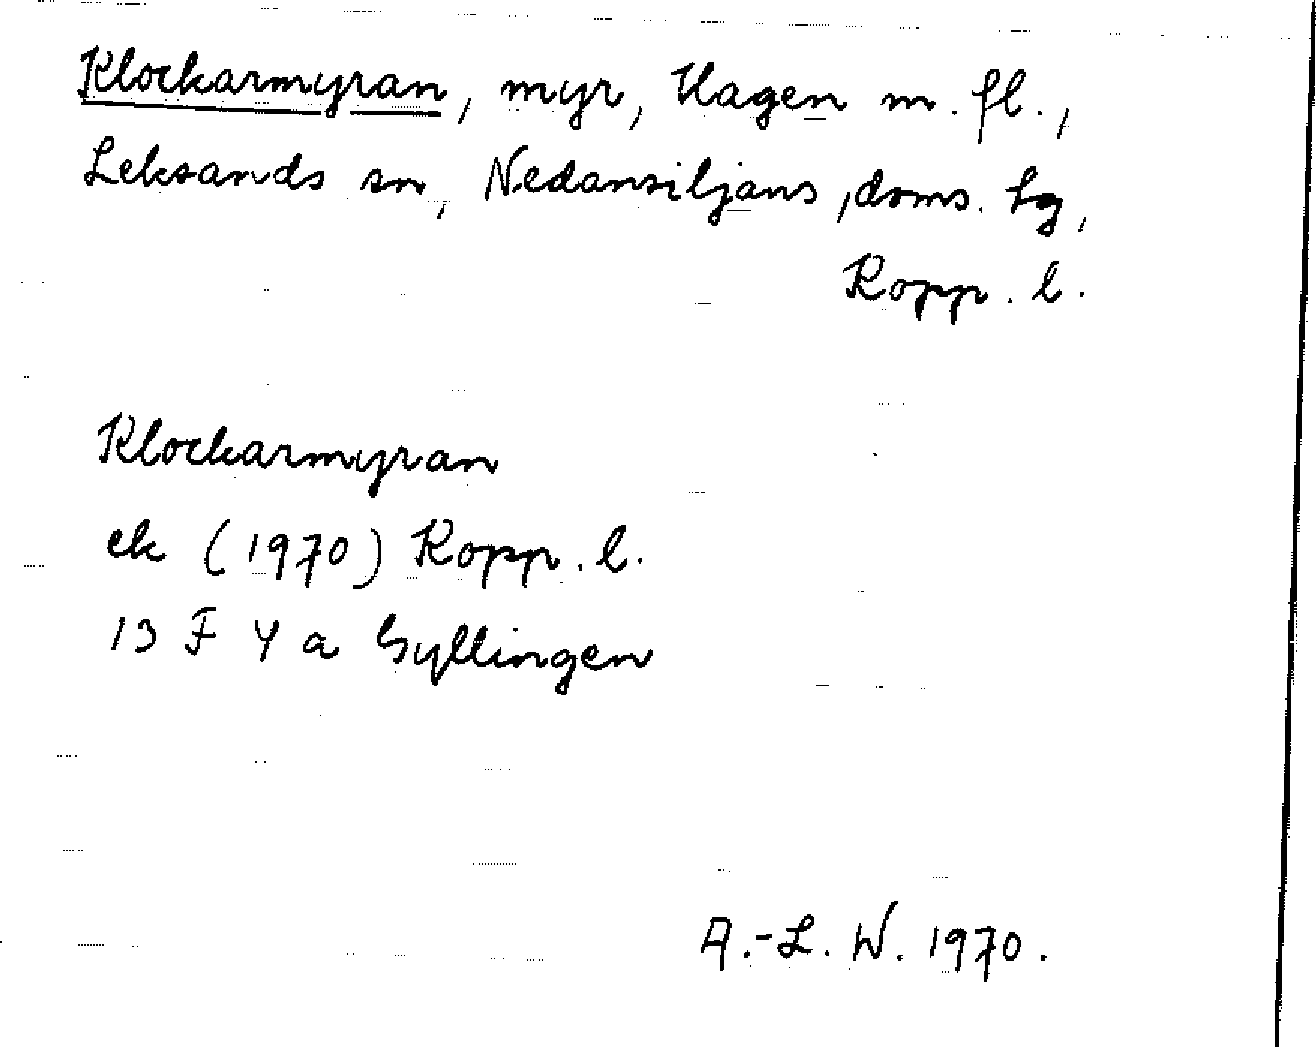 Klockarmyran, myr, Hagen m. fl.,
Leksands sn, Nedansiljans, doms. hg,
Kopp. l.
Klockarmyran
ek (1970) Kopp. l.
13 F 4 a Gyllingen
A.-L. W. 1970.